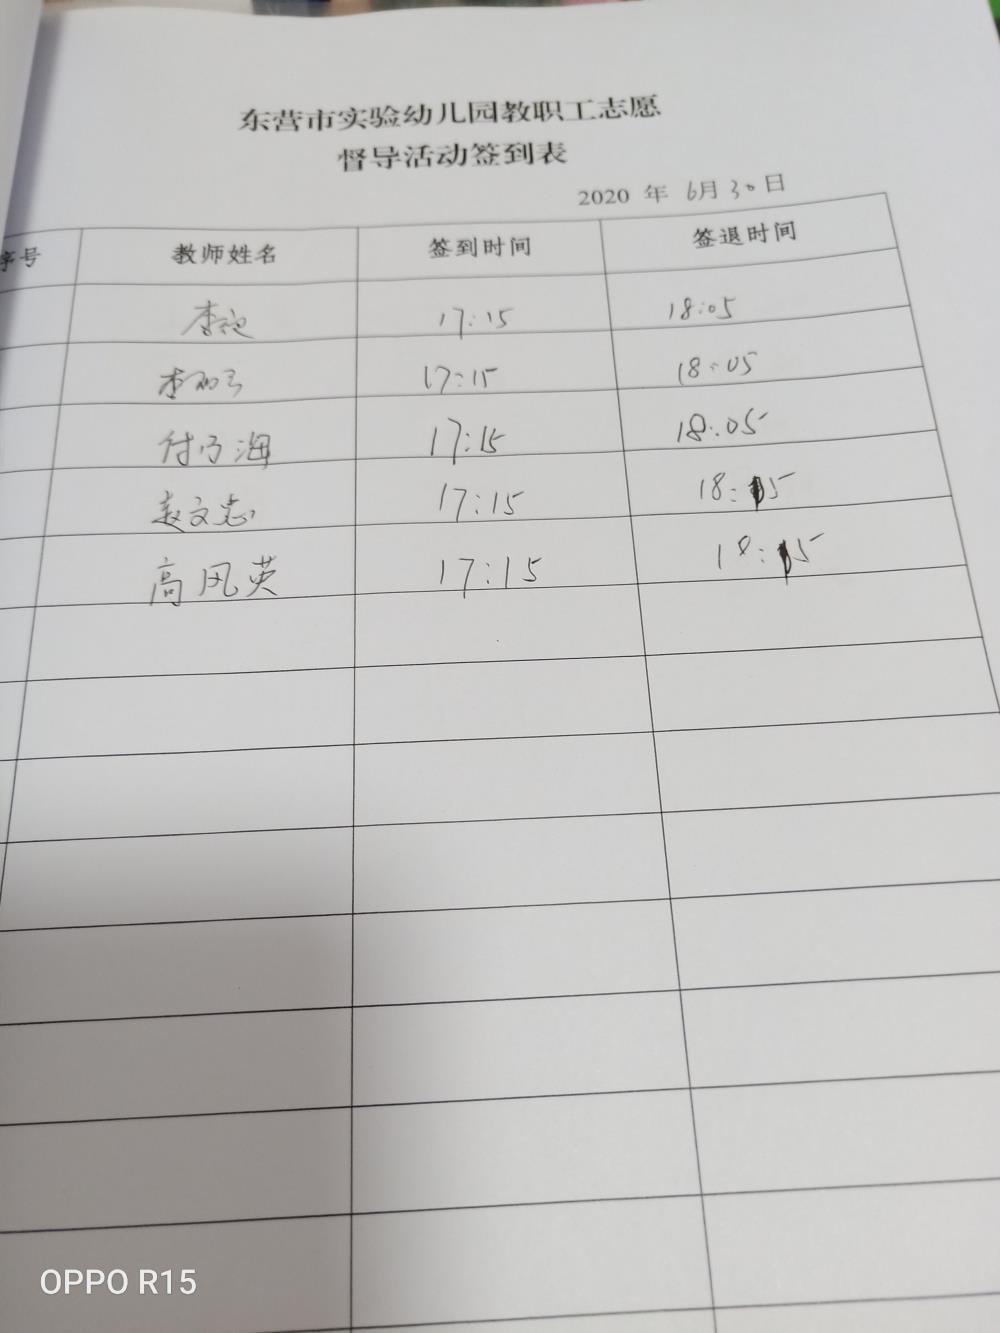 东营市实验幼儿园教职工志愿
督导活动签到表
2020 年 6月30日
序号 教师姓名 签到时间 签退时间
17:15 18:05
17:15 18:05
17:15 18:05
赵文志 17:15 18:15
高风英 17:15 18:15
OPPO R15